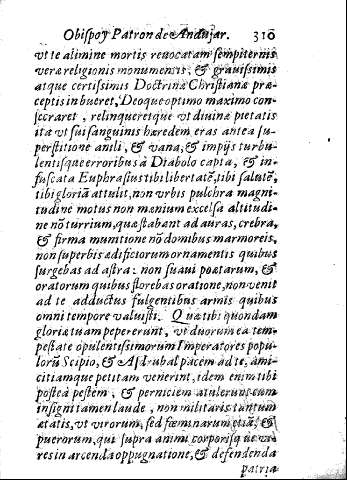 Obispo y Patron de Andujar. 310
vt te alimine mortis reuocatam sempiternis
veræ religionis monumentis, & grauissimis
atque certissimis Doctrinæ Christianæ præ-
ceptis inbueret, Deoque optimo maximo con-
secraret, relinqueretque vt diuinæ pietatis
ita vt sui sanguinis hæredem eras antea su-
perstitione anili, & vana, & impijs turbu-
lentisque erroribus à Diabolo capta, & in-
fuscata Euphrasius tibi libertatē, tibi salutē,
tibi gloriā attulit, non vrbis pulchra magni-
tudine motus non mœnium excelsa altitudi-
ne nō turrium, quæ stabant ad auras, crebra,
& firma munitione nō domibus marmoreis,
non superbis ædificiorum ornamentis quibus
surgebas ad astra: non suaui poætarum, &
oratorum quibus florebas oratione, non venit
ad te adductus fulgentibus armis quibus
omni tempore valuisti. Quæ tibi quondam
gloriæ tuam pepererunt, vt duorum ea tem-
pestate opulentissimorum Imperatores popu-
lorū Scipio, & Asdrubal pacem ad te, ami-
citiamque petitam venerint, idem enim tibi
posteà pestem, & perniciem atulerunt cum
insigni tamen laude, non militaris tantum
ætatis, vt virorum, sed fœminarum etiā, &
puerorum, qui supra animi corporisque vi-
res in arcenda oppugnatione, & defendenda
patria